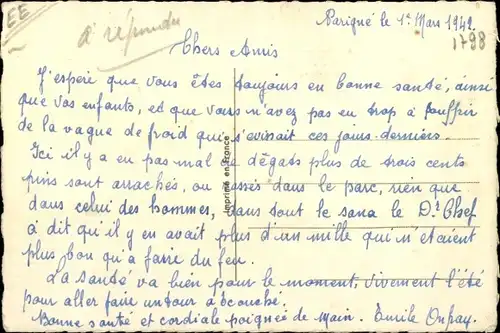 EE
à répondre
Parigné le 1er Mars 1942.
1798
Chers Amis
J'espère que vous êtes toujours en bonne santé, ainsi
que vos enfants, et que vous n'avez pas eu trop à souffrir
de la vague de froid qui sévissait ces jours derniers.
Ici il y a eu pas mal de dégats plus de trois cents
pins sont arrachés, ou cassés dans le parc, rien que
dans celui des hommes, dans tout le sana le Dr Chef
à dit qu'il y en avait plus d'un mille qui n'étaient
plus bon qu'a faire du feu.
La santé va bien pour le moment, vivement l'été
pour aller faire un tour à écouché.
Bonne santé et cordiale poignée de Main. Emile
Imprimé en France